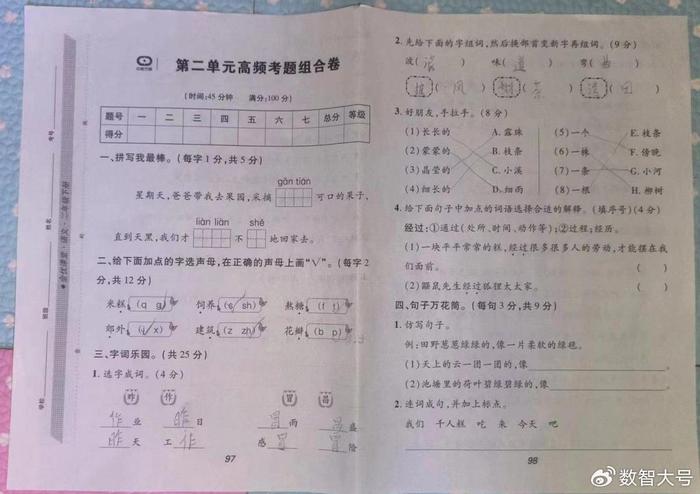 第二单元高频考题组合卷
(时间:45分钟 满分:100分)
题号 一 二 三 四 五 六 七 总分 等级
得分
一、拼写我最棒。(每字1分,共5分)
gān tián
星期天,爸爸带我去果园,采摘 可口的果子,
liàn liàn shě
直到天黑,我们才 不 地回家去。
二、给下面加点的字选声母,在正确的声母上画“√”。(每字2
分,共12分)
米糕(q g) 饲养(s sh) 熬糖(f t)
郊外(j x) 建筑(z zh) 花瓣(b p)
三、字词乐园。(共25分)
1.选字成词。(4分)
昨 作 冒 昌
作业 昨日 冒雨 昌盛
昨天 工作 感冒 冒险
97
2.先给下面的字组词,然后换部首变新字再组词。(9分)
波( ) 味(味道) 弯(弯曲)
3.好朋友,手拉手。(8分)
(1)长长的 A.露珠 (5)一个 E.枝条
(2)蒙蒙的 B.枝条 (6)一株 F.傍晚
(3)晶莹的 C.小溪 (7)一条 G.小河
(4)细长的 D.细雨 (8)一根 H.柳树
4.给下面句子中加点的词语选择合适的解释。(填序号)(4分)
经过:①通过(处所、时间、动作等);②过程;经历。
(1)一块平平常常的糕,经过很多很多人的劳动,才能摆在我
们面前。 ( )
(2)鼹鼠先生经过狐狸太太家。 ( )
四、句子万花筒。(每句3分,共9分)
1.仿写句子。
例:田野葱葱绿绿的,像一片柔软的绿毯。
(1)天上的云一团一团的,像 。
(2)池塘里的荷叶碧绿碧绿的,像 。
2.连词成句,并加上标点。
我们 千人糕 吃 来 今天 吧
98
考号
姓名
班级
学校
语文·二年级下册
数智大号